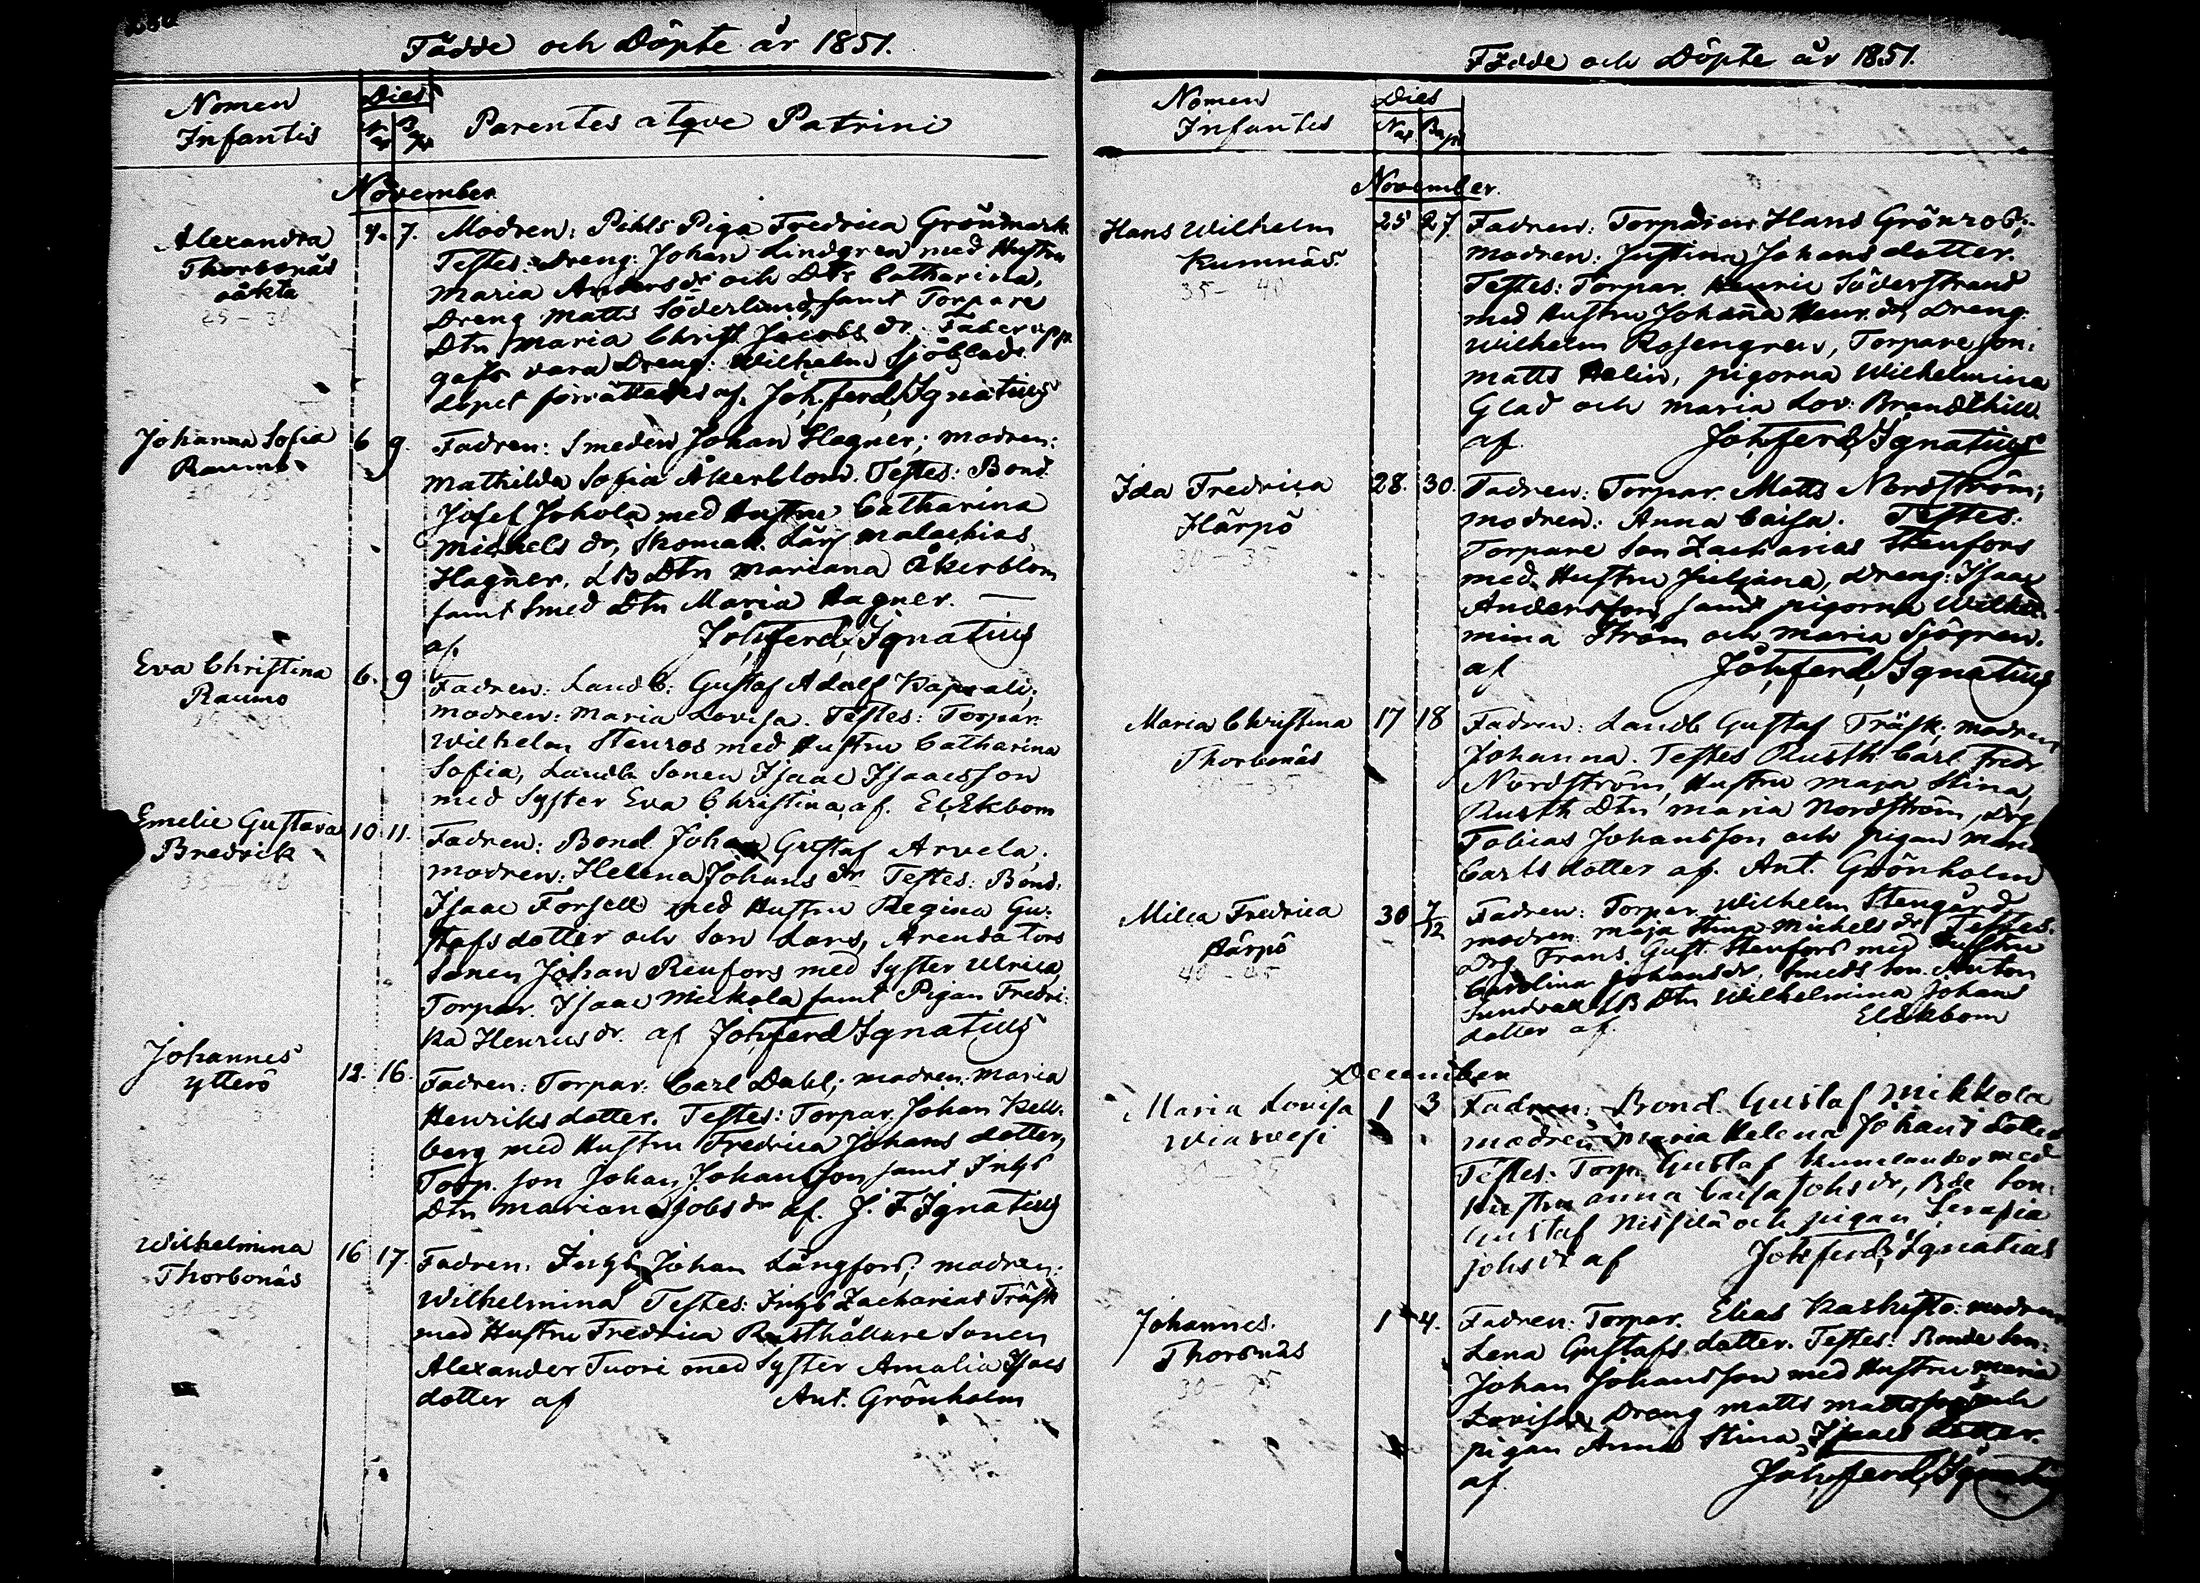 Födde och Döpte år 1851.
Nomen
Infantis
Dies
Nat
Bapt
Parentes atqve Patrini
November
Alexandra
Thorbonäs
oäkta
25 - 30
4. 7.
Modren: Pihls Piga Fredrica Grönmark
Testes: Dreng: Johan Lindgren med Hustru
Maria Anders dr och Dtr Catharina,
Dreng Matts Söderlund, samt Torpare
Dtn Maria Christ. Jacobs dr. Fader upp
gafs vara Dreng: Wilhelm Sjöblad.
Dopet förrättades af. Joh. ferd. Ignatius
Johanna Sofia
Raumo
6 9.
Fadren: Smeden Johan Hagner; modren:
Mathilda Sofia Åkerblom. Testes: Bond.
Josef Johola med Hustru Catharina
Michels dr, Skomak. Lärl Malachias
Hagner, LB Dtn Mariana Åkerblom
samt Smed Dtn Maria Hagner.
af. Joh. ferd. Ignatius
Eva Christina
Raumo
6. 9
Fadren: Landb: Gustaf Adolf
modren: Maria Lovisa. Testes: Torpar.
Wilhelm Stenros med Hustru Catharina
Sofia, Landb Sonen Isaac Isaacsson
med Syster Eva Christina, af. El. Ekbom
Emelie Gustava
Bredvik
35 - 40
10. 11.
Fadren: Bond. Johan Gustaf Arvela;
modren: Helena Johans dr Testes: Bond.
Isaac Forsell med Hustru Regina Gu-
stafs dotter och Son Lars, Arendators
Sonen Johan Renfors med Syster Ulrica,
Torpar. Isaac Mickola samt Pigan Fredri-
ka Henrics dr. af Joh. ferd Ignatius
Johannes
Ytterö
12. 16.
Fadren: Torpar: Carl Dahl; modren: Maria
Henriks dotter. Testes: Torpar. Johan Kell-
berg med Hustru Fredrica Johans dotter,
Torp. Son Johan Johansson samt Inhs
Dtn Mariana Jobs dr af. J. F Ignatius
Wilhelmina
Thorbonäs
30 - 35
16 17.
Fadren: Inhs Johan Långfors, modren:
Wilhelmina Testes: Inhs Zacharias Träsk
med Hustru Fredrica Rusthållare Sonen
Alexander Tuori med Syster Amalia Isacs
dotter af Ant. Grönholm
Födde och Döpte år 1851.
Nomen
Infantis
Dies
Nat
Bapt
November.
Hans Wilhelm
Kumnäs.
35 - 40
25 27
Fadren: Torparen Hans Grönros;
modren: Justina Johans dotter.
Testes: Torpar. Henric Söderstrand
med Hustru Johanna Henr. dr, Dreng.
Wilhelm Rosengren, Torpare Son:
Matts Helin, pigorna Wilhelmina
Glad och Maria Lov: Brandthill
af. Joh. ferd. Ignatius
Ida Fredrica
Härpö
30 - 35
28. 30.
Fadren: Torpar. Matts Nordström;
modren: Anna Caisa. Testes:
Torpare Son Zacharias Stenfors
med Hustru Juliana, Dreng: Isaac
Andersson, samt pigorna Wilhel-
mina Ström och Maria Sjögren.
af Joh. ferd. Ignatius
Maria Christina
Thorbonäs
30 - 35
17 18
Fadren: Landb Gustaf Träsk; modren
Johanna. Testes Rusth Carl Fredr
Nordström, Hustru Maja Stina,
Rusth Dtn Maria Nordström, Drg
Tobias Johansson och pigan Maria
Carls dotter af. Ant. Grönholm
Milca Fredrica
Härpö
40 - 45
30 7/12
Fadren: Torpar Wilhelm Stengård
modren: Maja Stina Michels dr Testes.
Drg Frans. Gust. Stenfors med Hustru
Carolina Johans dr, Smeds Son. Anton
Sundvall, LB Dtn Wilhelmina Johans
dotter af. El Ekbom
December
Maria Lovisa
Wiasvesi
30 - 35
1 3
Fadren: Bond. Gustaf Mikkola
modren Maria Helena Johans dotter
Testes: Torp. Gustaf Kumlander med
Hustru Anna Caisa Johs dr, Bde Son:
Gustaf Nissilä och pigan Serafia
Johs dr af Joh. ferd. Ignatius
Johannes.
Thorbnäs
30 - 35
1 4.
Fadren: Torpar. Elias Kaskisto: modren
Lena Gustafs dotter. Testes: Bonde Son:
Johan Johansson med Hustru Maria
Lovisa, Dreng Matts Mattsson och
pigan Anna Stina Isaacs dotter.
af. Joh. ferd. Ignatius